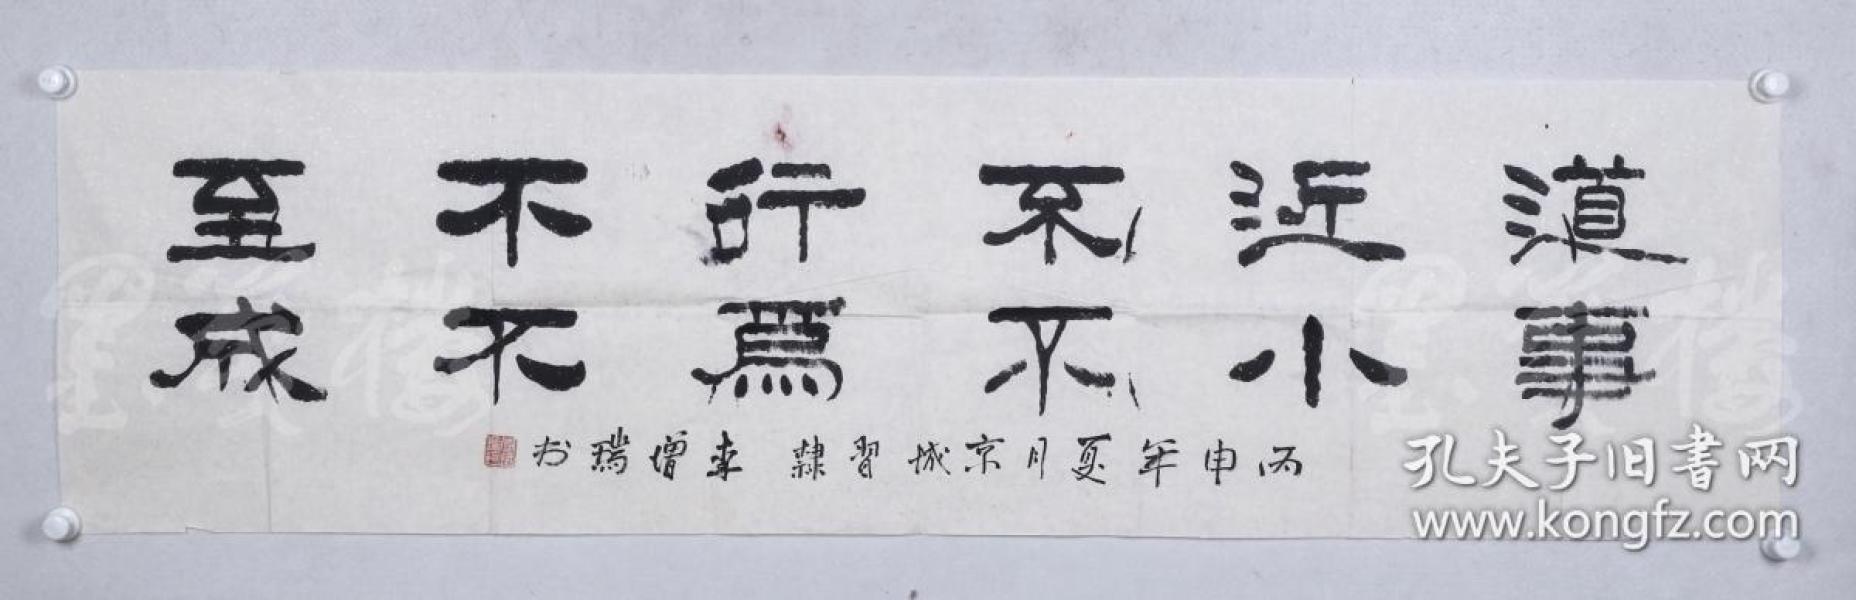 道近不行不至
事小不爲不成
丙申年夏月京城習隸 增瑞书
墨箋樓
墨箋樓
孔夫子旧書网
www.kongfz.com